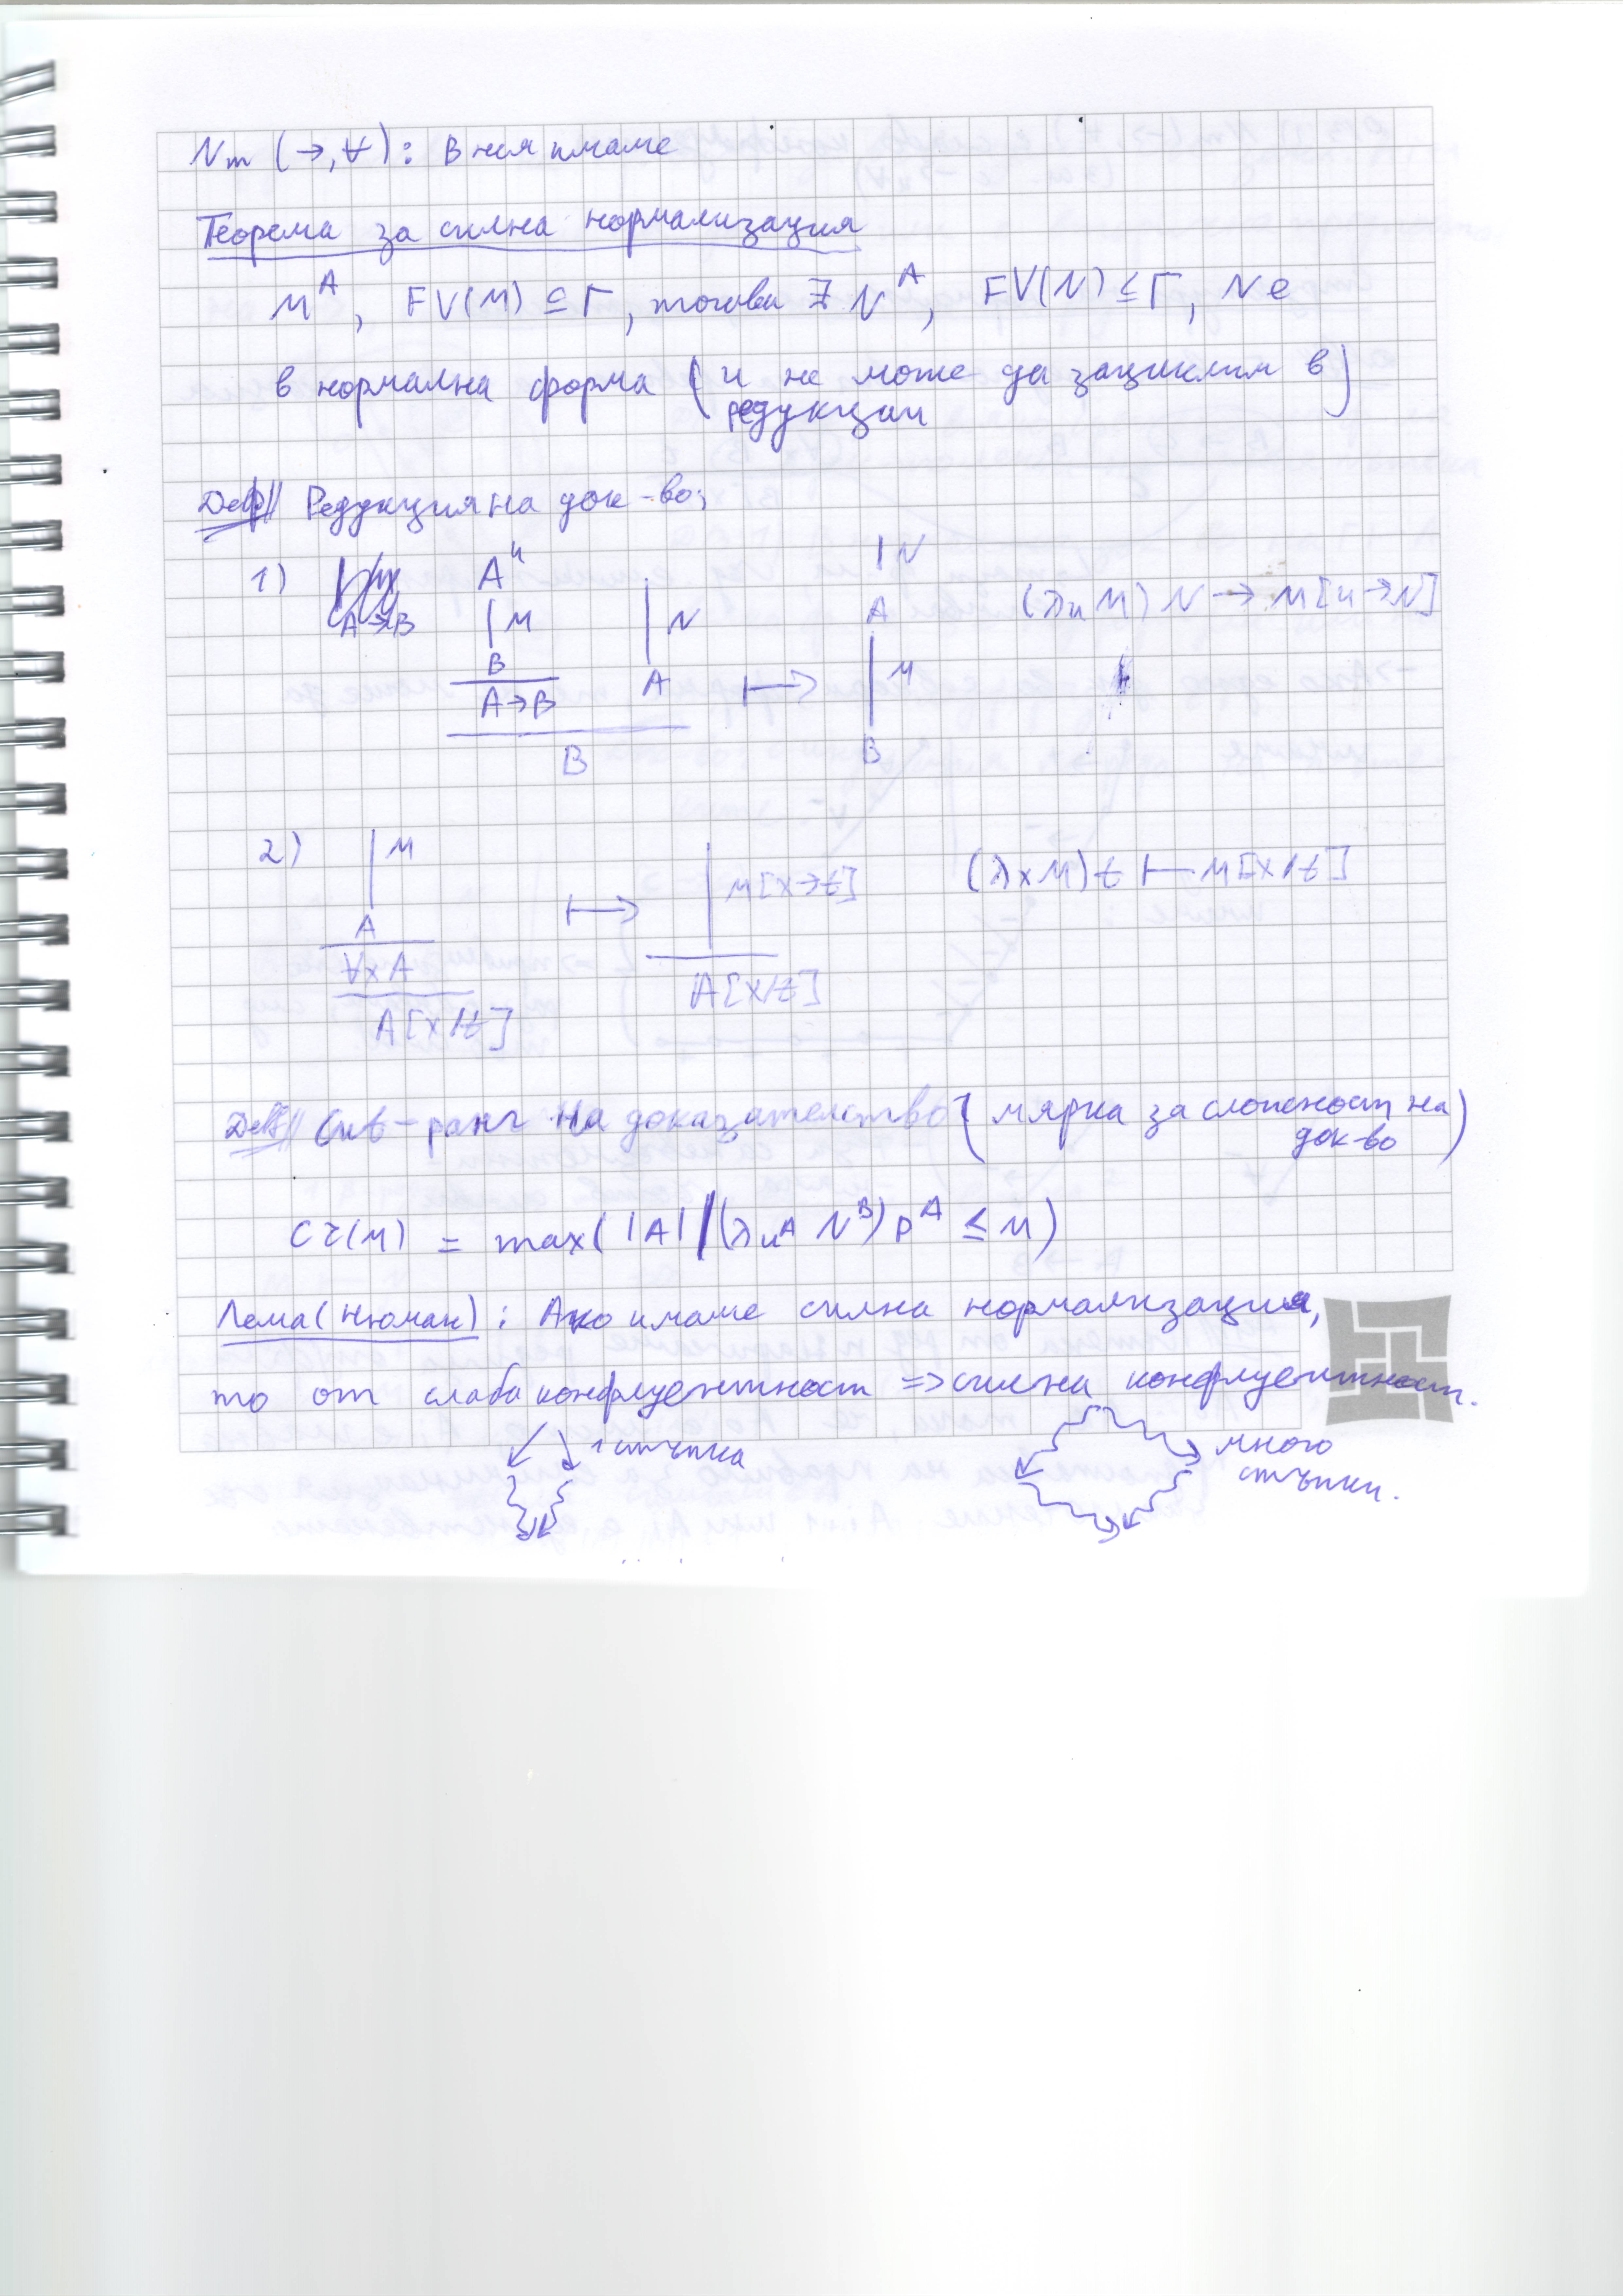 Nm (→, ∀): В нея имаме
Теорема за силна нормализация
M^A, FV(M) ⊆ Γ, тогава ∃ N^A, FV(N) ⊆ Γ, N е
в нормална форма (и не може да зациклим в
редукции)
Def// Редукция на док-во:
1) A^u |N
A→B |M |N A (λu M) N → M[u→N]
B |M
A→B A ↦
B B
2) |M
|M[x→t] (λx M) t ↦ M[x/t]
A ↦
∀x A
A[x/t] A[x/t]
Def// Cut-ранг на доказателство (мярка за сложност на
док-во)
cr(M) = max( |A| | (λu^A N^B) P^A ≤ M )
Лема (Нюман): Ако имаме силна нормализация,
то от слаба конфлуентност => силна конфлуентност.
1 стъпка
много
стъпки.